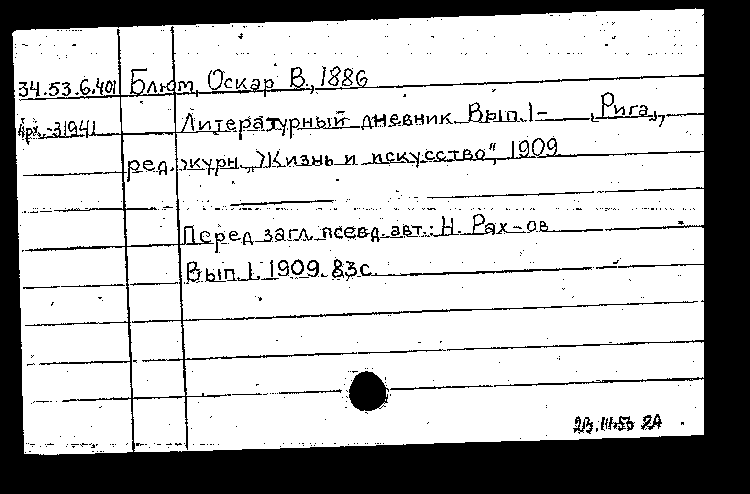 34.53.6.401 Блюм, Оскар В., 1886
Арх.-31941 Литературный дневник. Вып. 1- , Рига,
ред. журн. „Жизнь и искусство", 1909
Перед загл. псевд. авт.: Н. Рах-ов
Вып. 1. 1909. 83с.